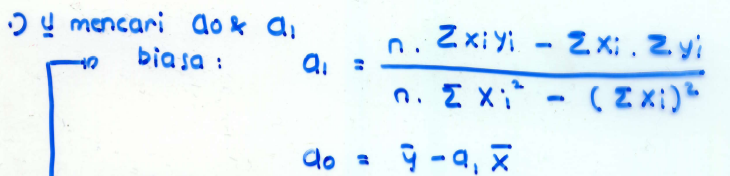 ·) u/ mencari a₀ & a₁
biasa : a₁ = (n . Σxiyi - Σxi . Σyi) / (n . Σxi² - (Σxi)²)
a₀ = ȳ - a₁ x̄